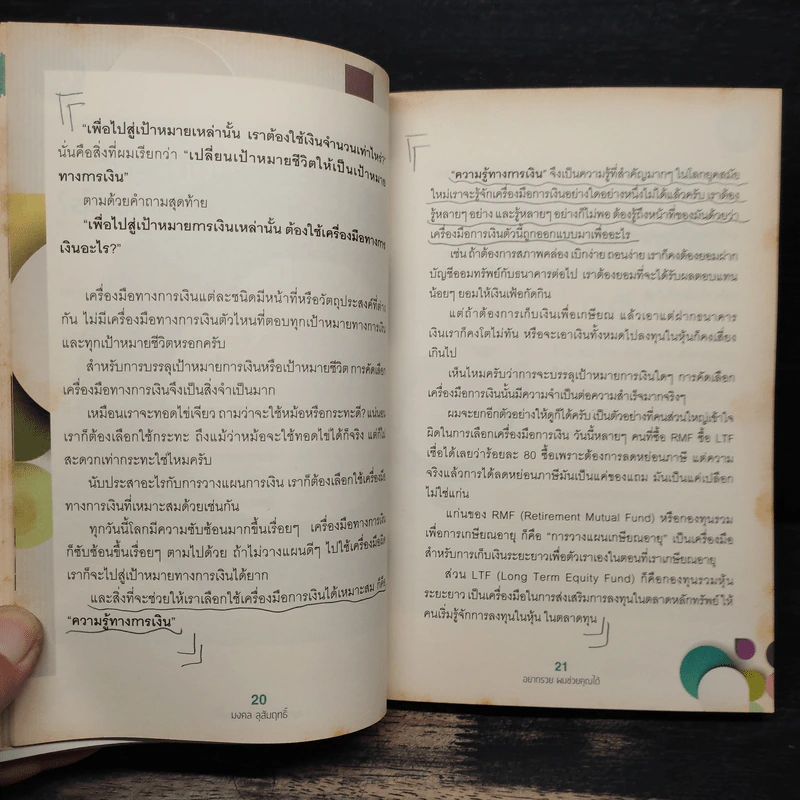 "เพื่อไปสู่เป้าหมายเหล่านั้น เราต้องใช้เงินจำนวนเท่าไหร่?"
นั่นคือสิ่งที่ผมเรียกว่า "เปลี่ยนเป้าหมายชีวิตให้เป็นเป้าหมาย
ทางการเงิน"
ตามด้วยคำถามสุดท้าย
"เพื่อไปสู่เป้าหมายการเงินเหล่านั้น ต้องใช้เครื่องมือทางการ
เงินอะไร?"
เครื่องมือทางการเงินแต่ละชนิดมีหน้าที่หรือวัตถุประสงค์ที่ต่าง
กัน ไม่มีเครื่องมือทางการเงินตัวไหนที่ตอบทุกเป้าหมายทางการเงิน
และทุกเป้าหมายชีวิตหรอกครับ
สำหรับการบรรลุเป้าหมายการเงินหรือเป้าหมายชีวิต การคัดเลือก
เครื่องมือทางการเงินจึงเป็นสิ่งจำเป็นมาก
เหมือนเราจะทอดไข่เจียว ถามว่าจะใช้หม้อหรือกระทะดี? แน่นอน
เราก็ต้องเลือกใช้กระทะ ถึงแม้ว่าหม้อจะใช้ทอดไข่ได้ก็จริง แต่ก็ไม่
สะดวกเท่ากระทะใช่ไหมครับ
นับประสาอะไรกับการวางแผนการเงิน เราก็ต้องเลือกใช้เครื่องมือ
ทางการเงินที่เหมาะสมด้วยเช่นกัน
ทุกวันนี้โลกมีความซับซ้อนมากขึ้นเรื่อยๆ เครื่องมือทางการเงิน
ก็ซับซ้อนขึ้นเรื่อยๆ ตามไปด้วย ถ้าไม่วางแผนดีๆ ไปใช้เครื่องมือผิด
เราก็จะไปสู่เป้าหมายทางการเงินได้ยาก
และสิ่งที่จะช่วยให้เราเลือกใช้เครื่องมือการเงินได้เหมาะสม ก็คือ
"ความรู้ทางการเงิน"
20
มงคล ลุสัมฤทธิ์
"ความรู้ทางการเงิน" จึงเป็นความรู้ที่สำคัญมากๆ ในโลกยุคสมัย
ใหม่เราจะรู้จักเครื่องมือการเงินอย่างใดอย่างหนึ่งไม่ได้แล้วครับ เราต้อง
รู้หลายๆ อย่าง และรู้หลายๆ อย่างก็ไม่พอ ต้องรู้ถึงหน้าที่ของมันด้วยว่า
เครื่องมือการเงินตัวนี้ถูกออกแบบมาเพื่ออะไร
เช่น ถ้าต้องการสภาพคล่อง เบิกง่าย ถอนง่าย เราก็คงต้องยอมฝาก
บัญชีออมทรัพย์กับธนาคารต่อไป เราต้องยอมที่จะได้รับผลตอบแทน
น้อยๆ ยอมให้เงินเฟ้อกัดกิน
แต่ถ้าต้องการเก็บเงินเพื่อเกษียณ แล้วเอาแต่ฝากธนาคาร
เงินเราก็คงโตไม่ทัน หรือจะเอาเงินทั้งหมดไปลงทุนในหุ้นก็คงเสี่ยง
เกินไป
เห็นไหมครับว่าการจะบรรลุเป้าหมายการเงินใดๆ การคัดเลือก
เครื่องมือการเงินนั้นมีความจำเป็นต่อความสำเร็จมากจริงๆ
ผมจะยกอีกตัวอย่างให้ดูก็ได้ครับ เป็นตัวอย่างที่คนส่วนใหญ่เข้าใจ
ผิดในการเลือกเครื่องมือการเงิน วันนี้หลายๆ คนที่ซื้อ RMF ซื้อ LTF
เชื่อได้เลยว่าร้อยละ 80 ซื้อเพราะต้องการลดหย่อนภาษี แต่ความ
จริงแล้วการได้ลดหย่อนภาษีมันเป็นแค่ของแถม มันเป็นแค่เปลือก
ไม่ใช่แก่น
แก่นของ RMF (Retirement Mutual Fund) หรือกองทุนรวม
เพื่อการเกษียณอายุ ก็คือ "การวางแผนเกษียณอายุ" เป็นเครื่องมือ
สำหรับการเก็บเงินระยะยาวเพื่อตัวเราเองในตอนที่เราเกษียณอายุ
ส่วน LTF (Long Term Equity Fund) ก็คือกองทุนรวมหุ้น
ระยะยาว เป็นเครื่องมือในการส่งเสริมการลงทุนในตลาดหลักทรัพย์ ให้
คนเริ่มรู้จักการลงทุนในหุ้น ในตลาดทุน
21
อยากรวย ผมช่วยคุณได้